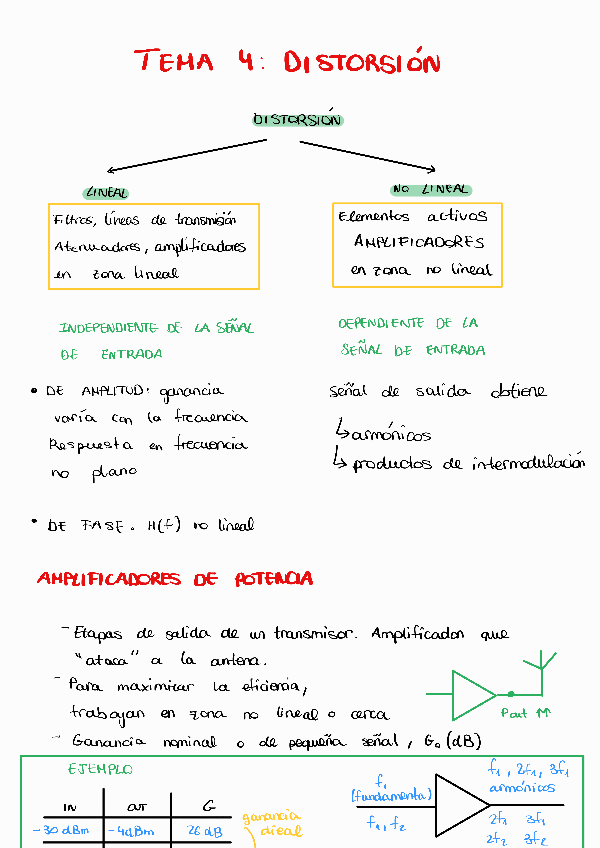 TEMA 4: DISTORSIÓN
DISTORSIÓN
LINEAL
Filtros, líneas de transmisión
Atenuadores, amplificadores
en zona lineal
INDEPENDIENTE DE LA SEÑAL
DE ENTRADA
• DE AMPLITUD: ganancia
varía con la frecuencia
Respuesta en frecuencia
no plano
• DE FASE. H(f) no lineal
NO LINEAL
Elementos activos
AMPLIFICADORES
en zona no lineal
DEPENDIENTE DE LA
SEÑAL DE ENTRADA
Señal de salida obtiene
↳ armónicos
↳ productos de intermodulación
AMPLIFICADORES DE POTENCIA
- Etapas de salida de un transmisor. Amplificador que
"ataca" a la antena.
- Para maximizar la eficiencia,
trabajan en zona no lineal o cerca
Pout ↑↑
- Ganancia nominal o de pequeña señal, G₀ (dB)
EJEMPLO
IN OUT G
-30 dBm -4dBm 26 dB
ganancia
dieal
f₁
(fundamental)
f₁, f₂
f₁, 2f₁, 3f₁
armónicos
2f₁ 3f₁
2f₂ 3f₂